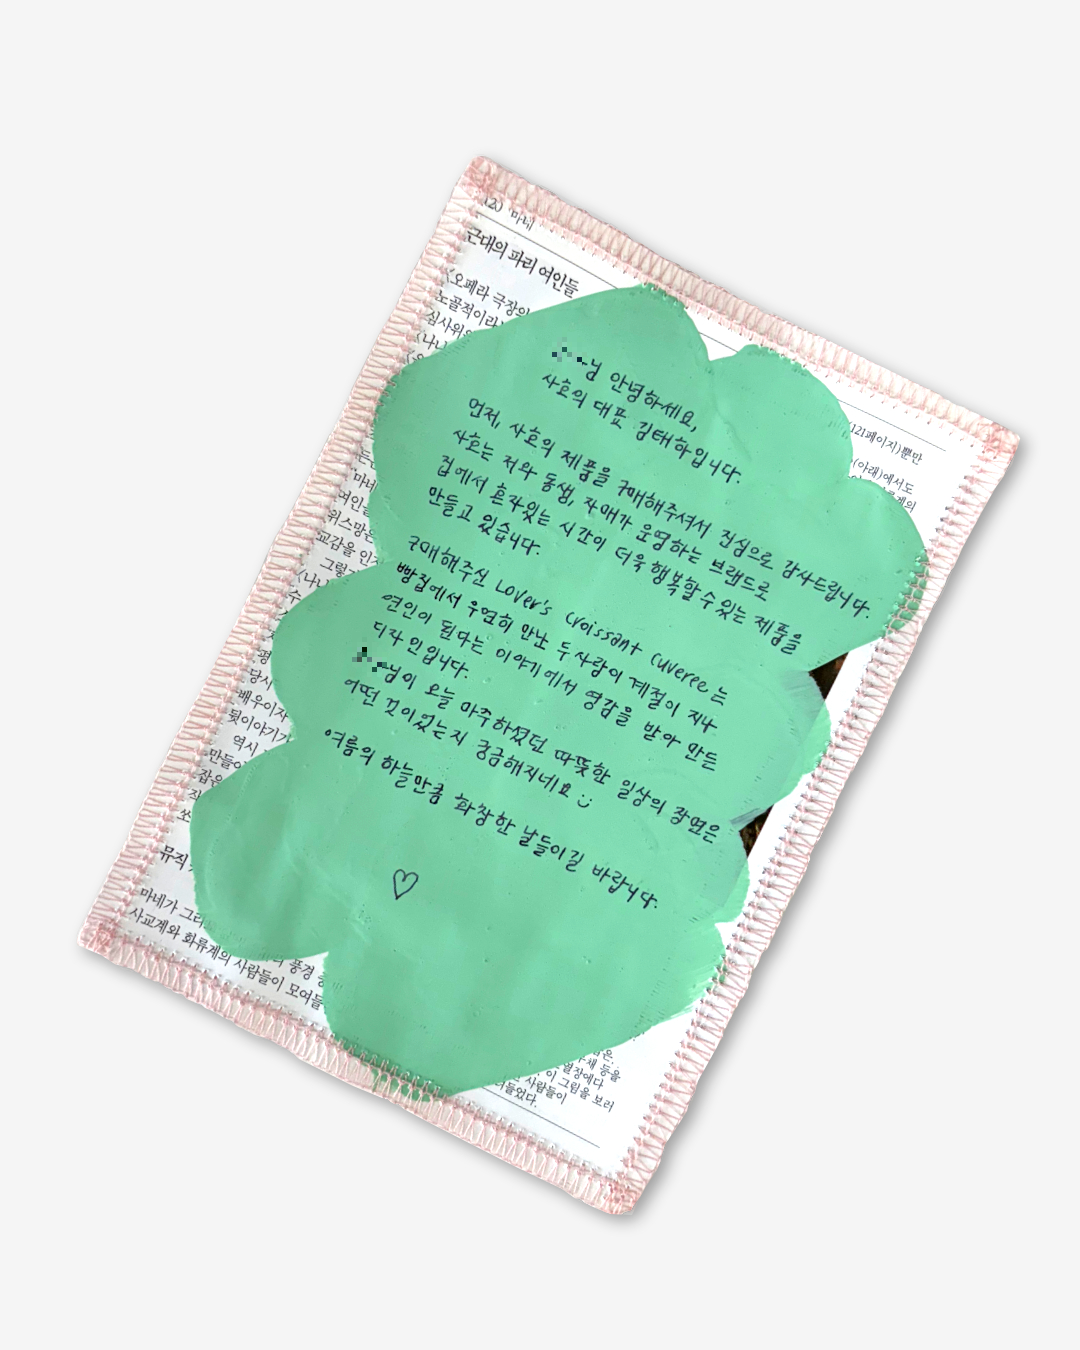 마네
근대의 파리 여인들
<오페라 극장의
노골적이라
심사위
<나나
님 안녕하세요,
사호의 대표 김태하입니다.
먼저, 사호의 제품을 구매해주셔서 진심으로 감사드립니다.
사호는 저와 동생, 자매가 운영하는 브랜드로
집에서 혼자있는 시간이 더욱 행복할 수 있는 제품을
만들고 있습니다.
구매해주신 Lover's Croissant Cuveree는
빵집에서 우연히 만난 두 사람이 계절이 지나
연인이 된다는 이야기에서 영감을 받아 만든
디자인입니다.
님이 오늘 마주하셨던 따뜻한 일상의 장면은
어떤 것이었는지 궁금해지네요 :)
여름의 하늘만큼 화창한 날들이길 바랍니다.
♡
121페이지)뿐만
(아래)에서도
마네
여인
위스망
교감을 인
그렇
<나나
수
평
당시
배우이자
뒷이야기가
역시
만들어
잡은
뮤직
마네가 그려
풍경
사교계와 화류계의 사람들이 모여들
채 등을
열장에다
이 그림을 보러
사람들이
려들었다.